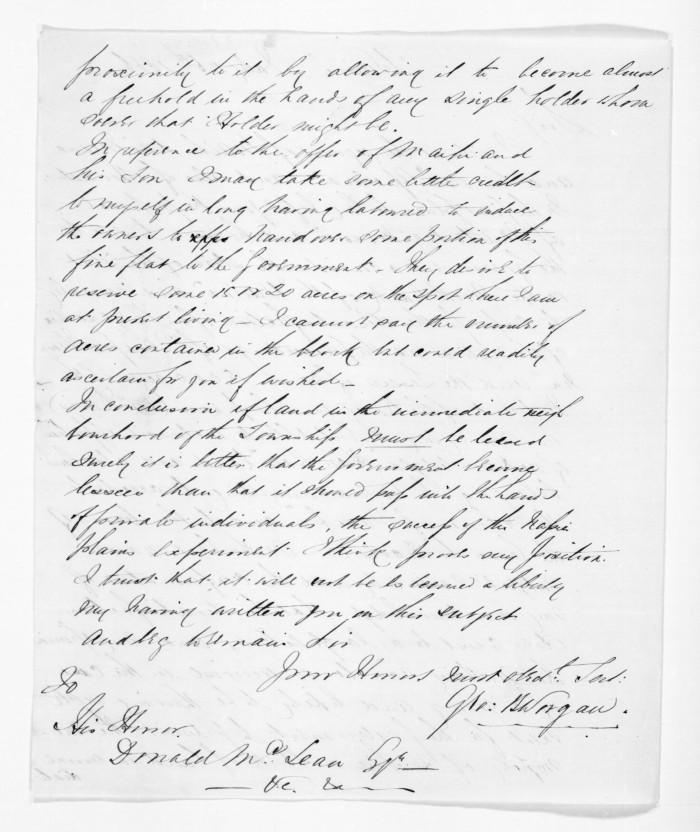 proximity to it by allowing it to become almost
a freehold in the hands of any single holder whom
soever that Holder might be.
In reference to the offer of Maihi and
his Son I may take some little credit
to myself in long having laboured to induce
the owners to handover some portion of this
fine flat to the Government - They desire to
reserve some 15 or 20 acres on the spot where I am
at present living - I cannot say the number of
acres contained in the block but could readily
ascertain for you if wished -
In conclusion if land in the immediate neigh
bourhood of the Township must be leased
surely it is better that the Government become
lessees than that it should pass into the hands
of private individuals, the success of the Napier
plains experiment I think proves my position.
I trust that it will not be esteemed a liberty
my having written you on this subject
and beg to remain Sir
Your Honors most obedt. Svt:
Geo: B Worgan.
To
His Honor
Donald McLean Esqr
&c. &c